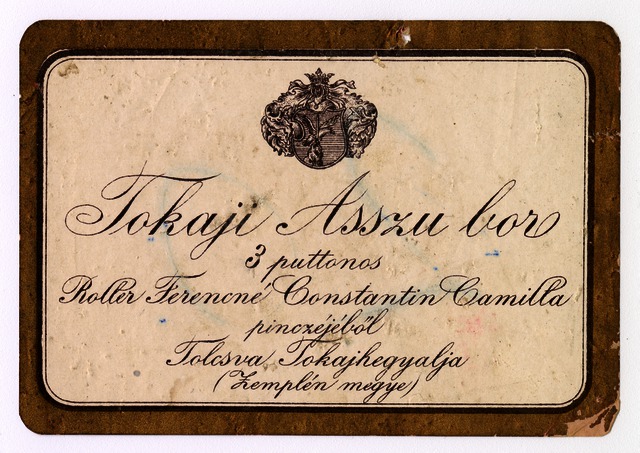 Tokaji Asszu bor
3 puttonos
Roller Ferencné Constantin Camilla
pinczéjéből
Tolcsva, Tokajhegyalja
(Zemplén megye)